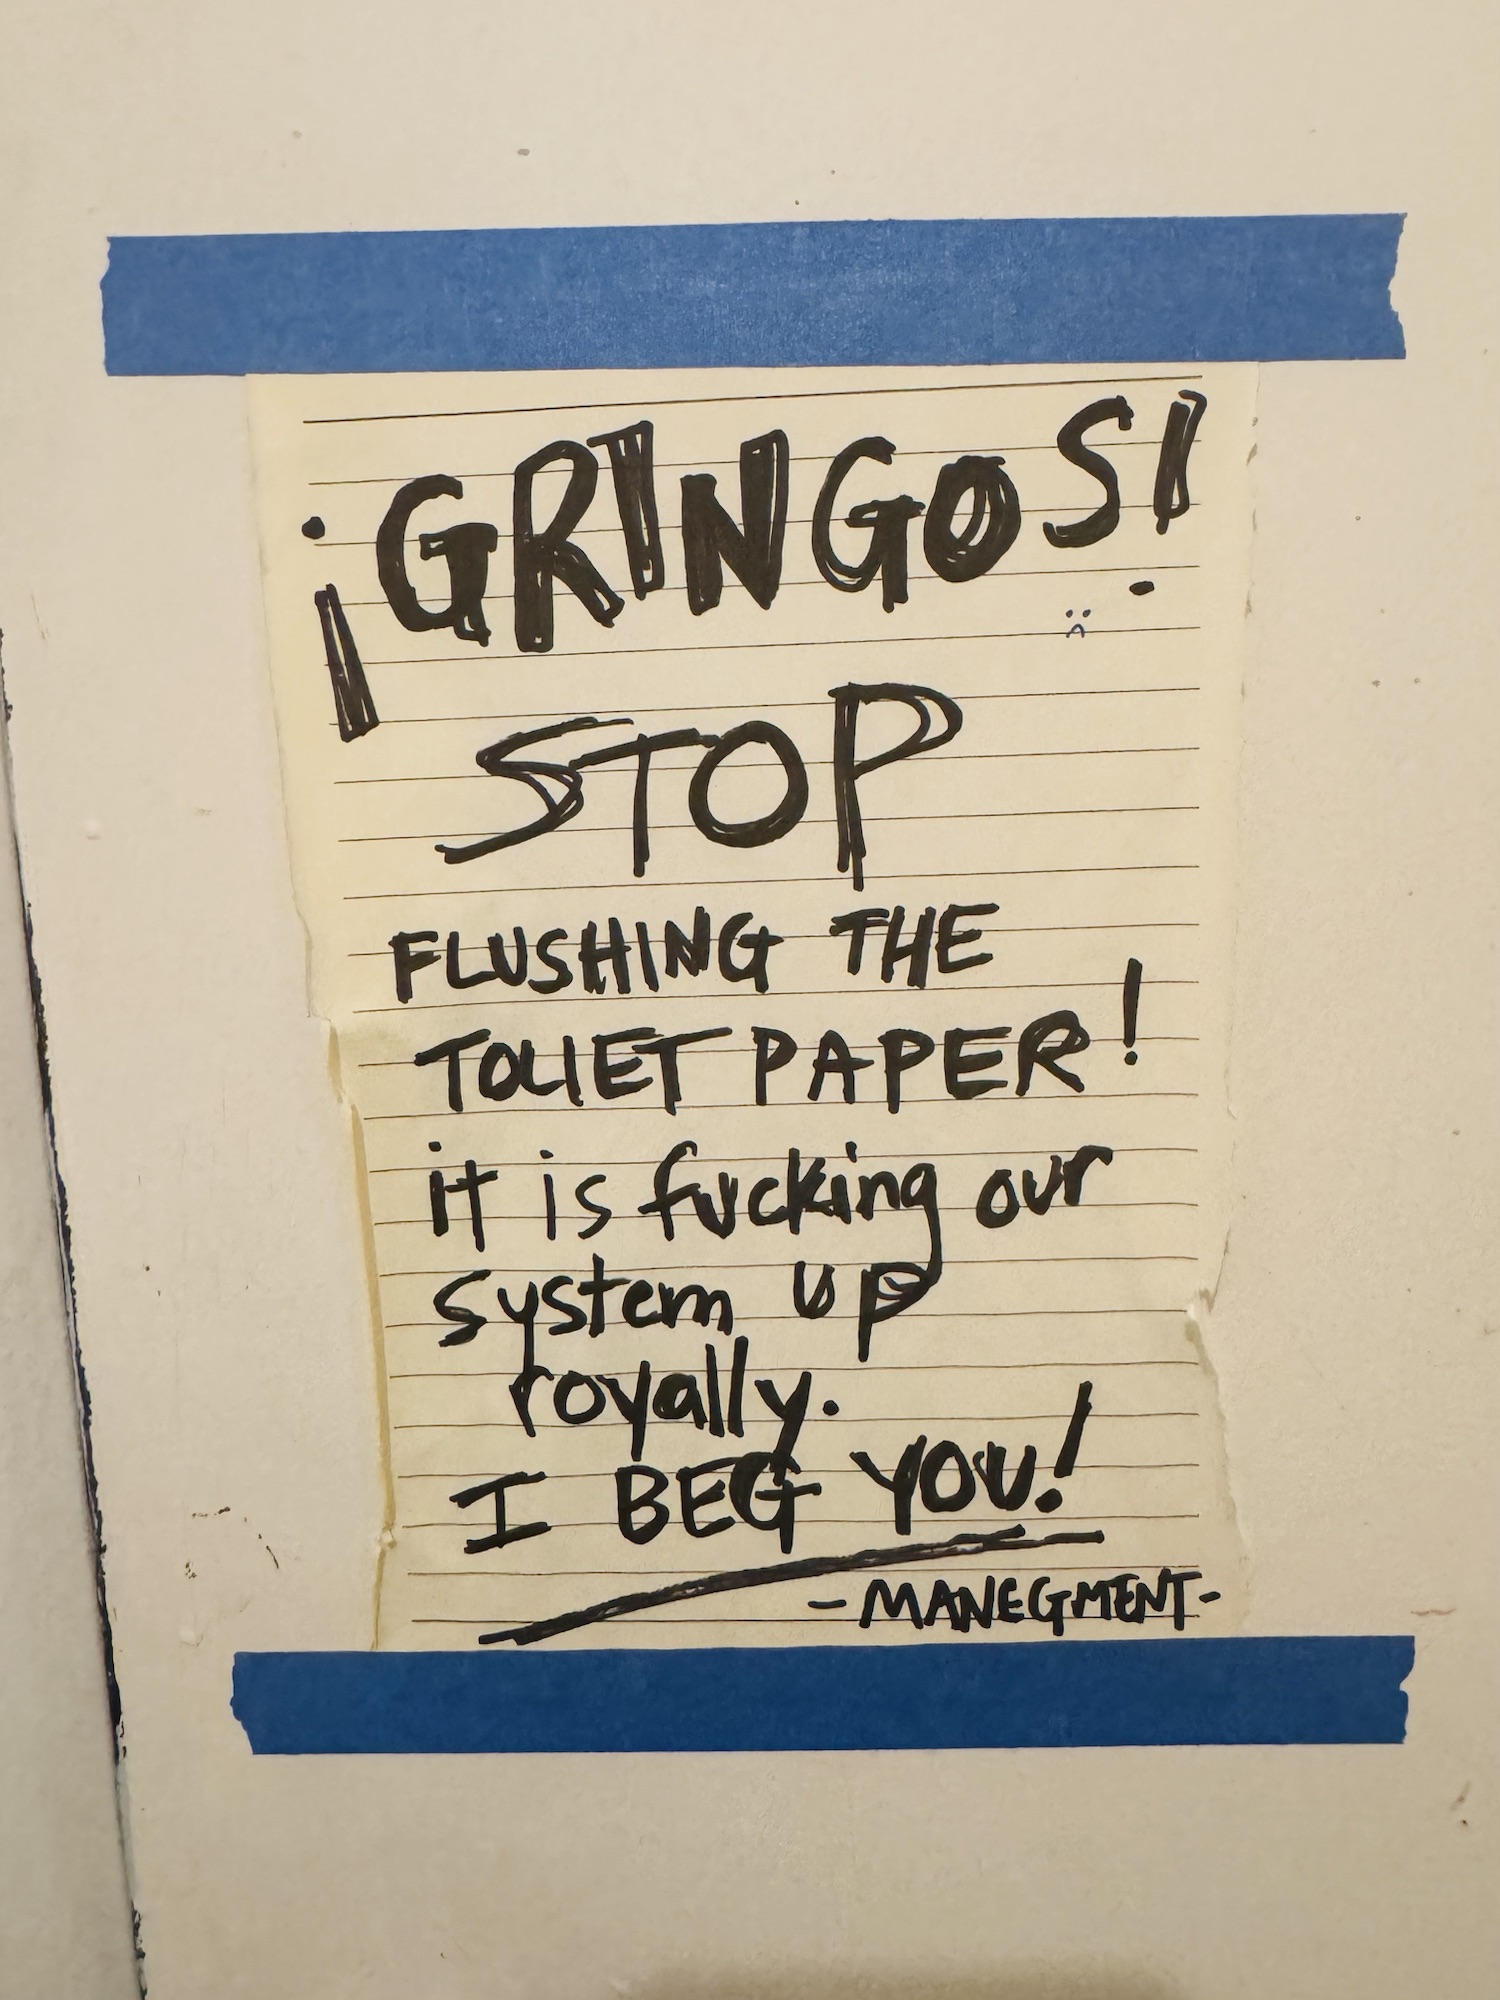 ¡GRINGOS!
STOP
FLUSHING THE
TOLIET PAPER!
it is fucking our
system up
royally.
I BEG YOU!
-MANEGMENT-